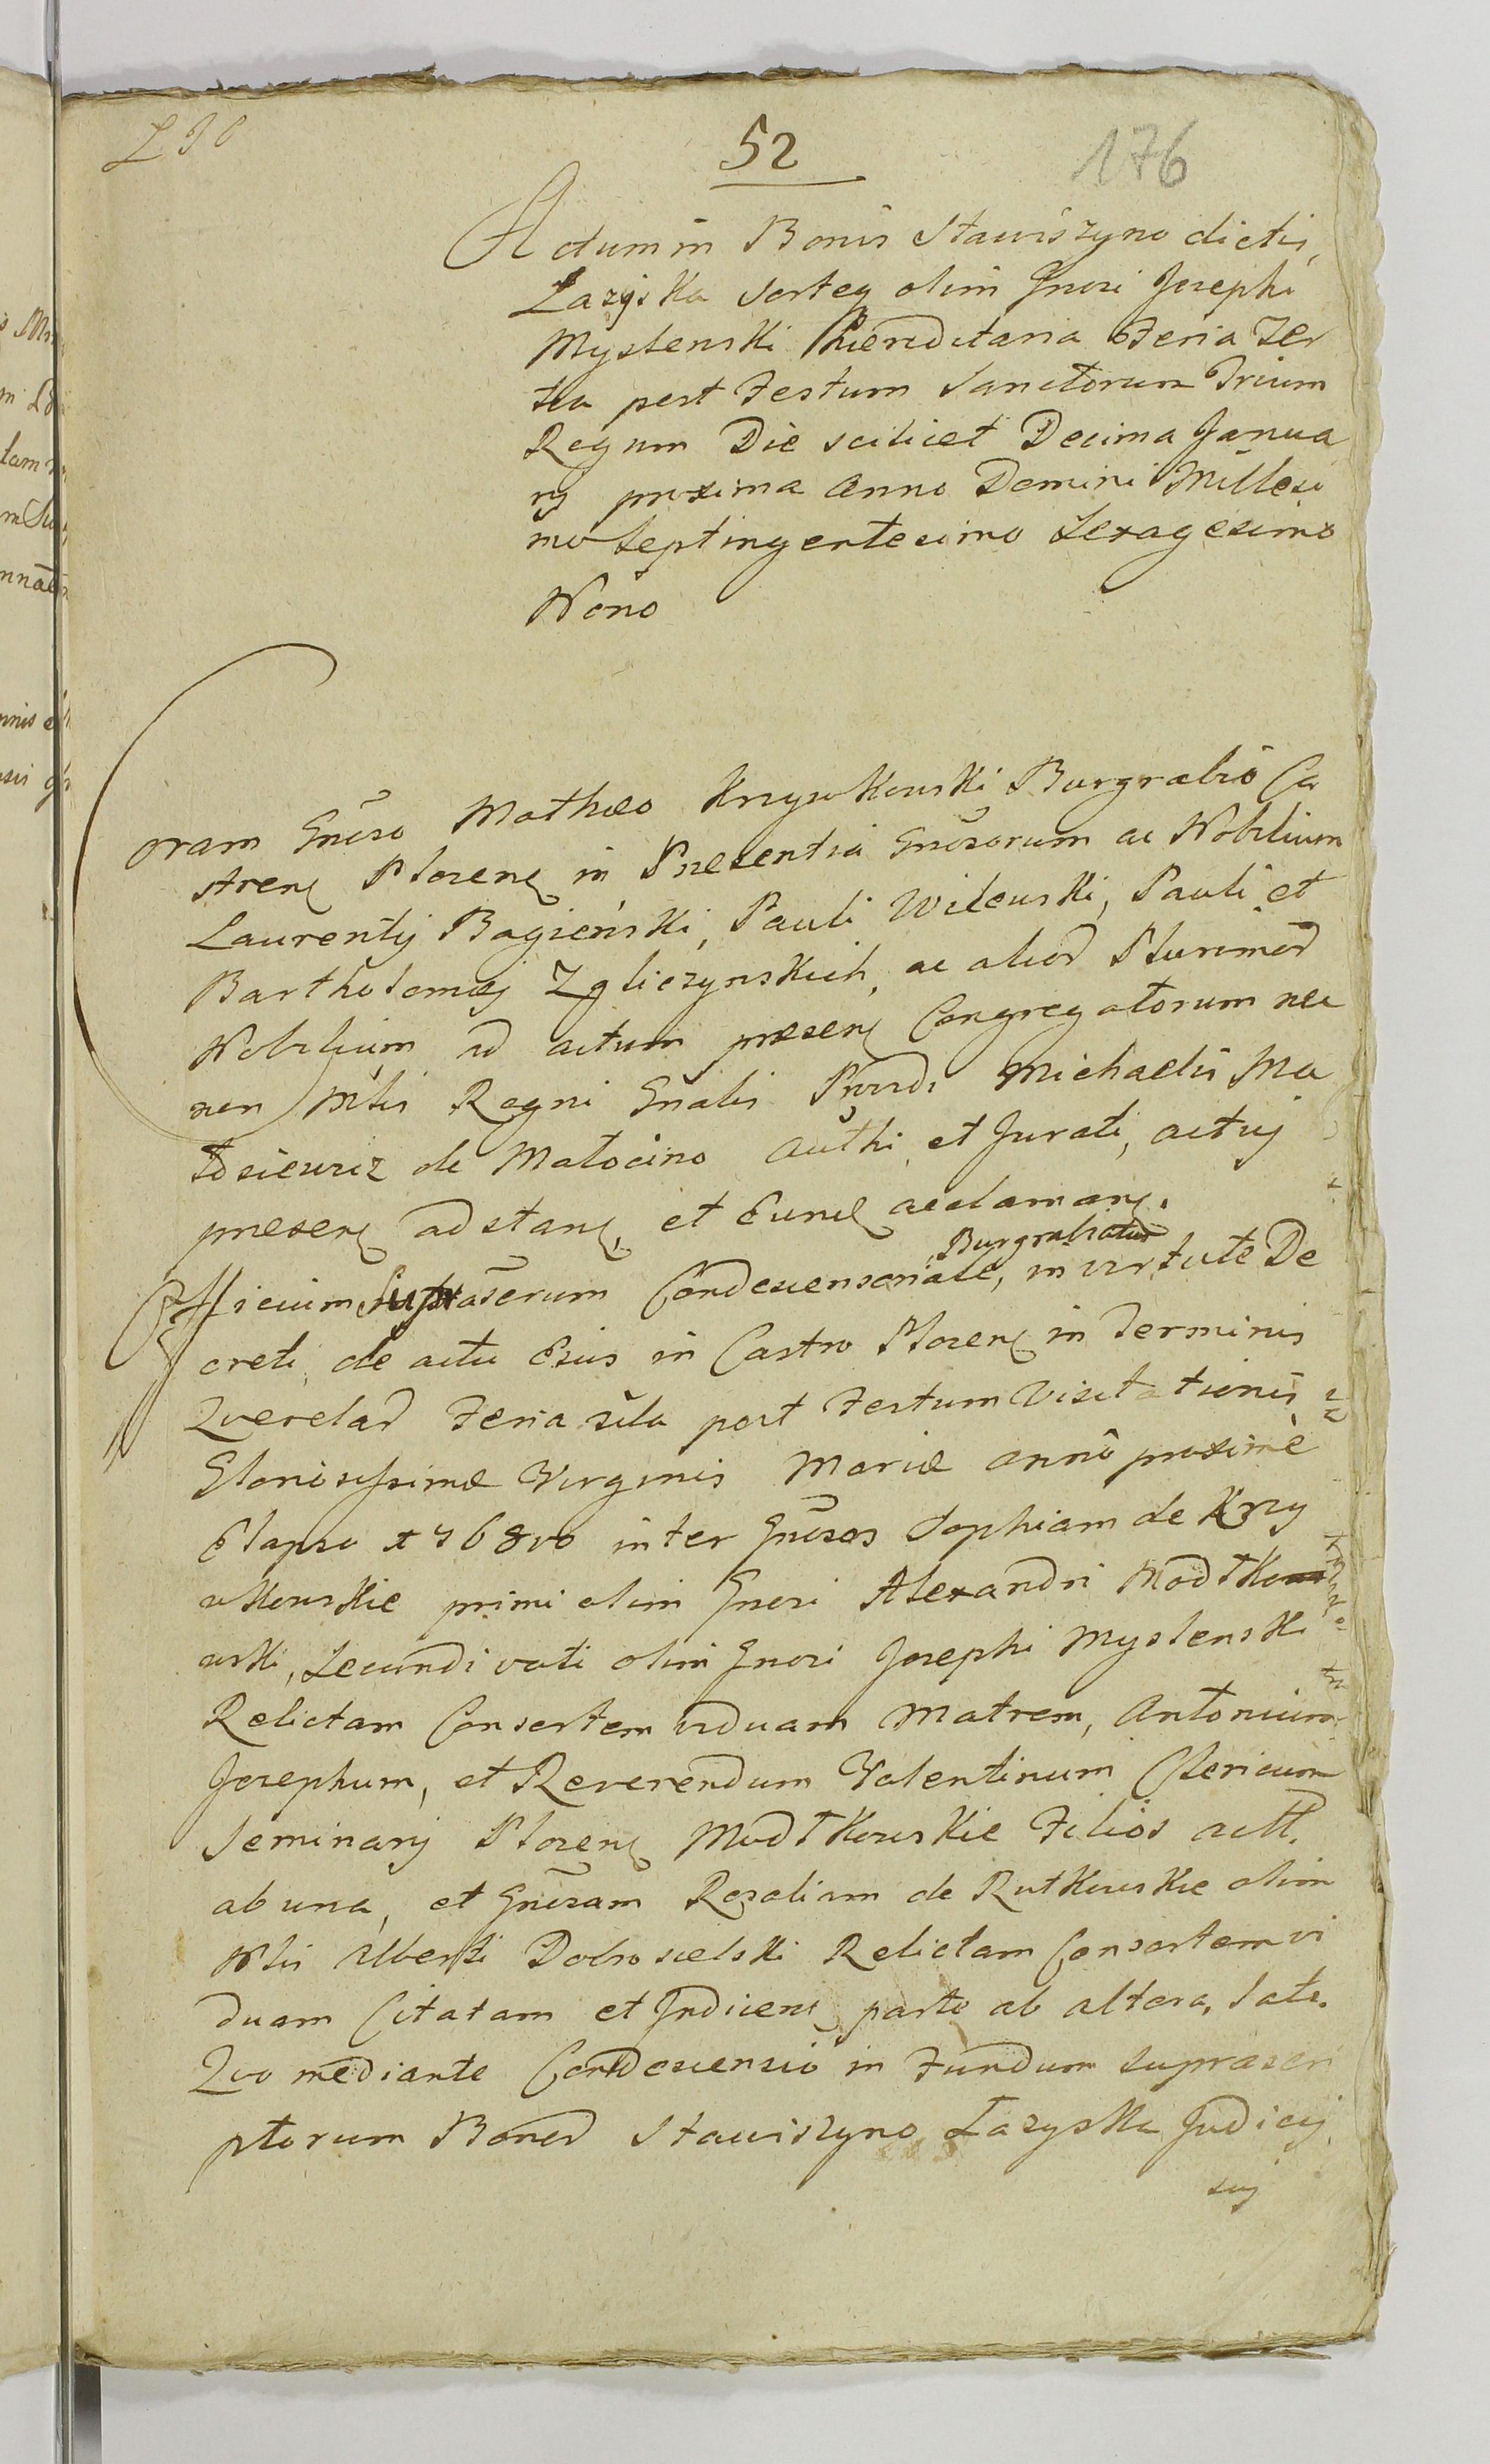 52
176
Actum in Bonis Stawiszyno dictis,
Łazyska Sorteq olim Gnosi Josephi
Myslenski Hæreditaria Feria Ter
tia post Festum Sanctorum Trium
Regum Die scilicet Decima Janua
rij proxima Anno Domini Millesi
mo Septingentesimo Sexagesimo
Nono
Coram Gnoso Mathæo Krzywkowski Burgrabio Ca
stren Plocen in Præsentia Gnosorum ac Nobilium
Laurentij Bagieński, Pauli Wilewski, Pauli et
Bartholomæj Zgliczynskich, ac alior Plurimor
Nobilium ad actum præsen Congregatorum nec
non Mtis Regni Gnalis Provdi Michaelis Ma
tosiewicz de Matocino Authi et Jurati, actuj
præsen adstan, et Eund acclaman.
Officium Suprascrum Condescensoriale, Burgrabiatus in virtute De
creti, de actu Ejus in Castro Plocen in Terminis
Querelar Feria 2da post Festum Visitationis
Gloriosissimæ Virginis Mariæ anno proxime
Elapso 1768vo inter Gnosos Sophiam de Krzy
wkowskie primi olim Gnosi Alexandri Modtkow
wski, Secundi voti olim Gnosi Josephi Myslenski
Relictam Consortem viduam Matrem, Antonium
Josephum, et Reverendum Valentinum Clericum
Seminarij Plocen Modtkowskie Filios actt.
ab una, et Gnosam Rosaliam de Rutkowskie olim
Nlis Alberti Dobrosielski Relictam Consortem vi
duam Citatam et Indicen parte ab altera, Late.
Quo mediante Condescensio in Fundum Suprascri
ptorum Bonor Stawiszyno Łazyska Judicij
suj